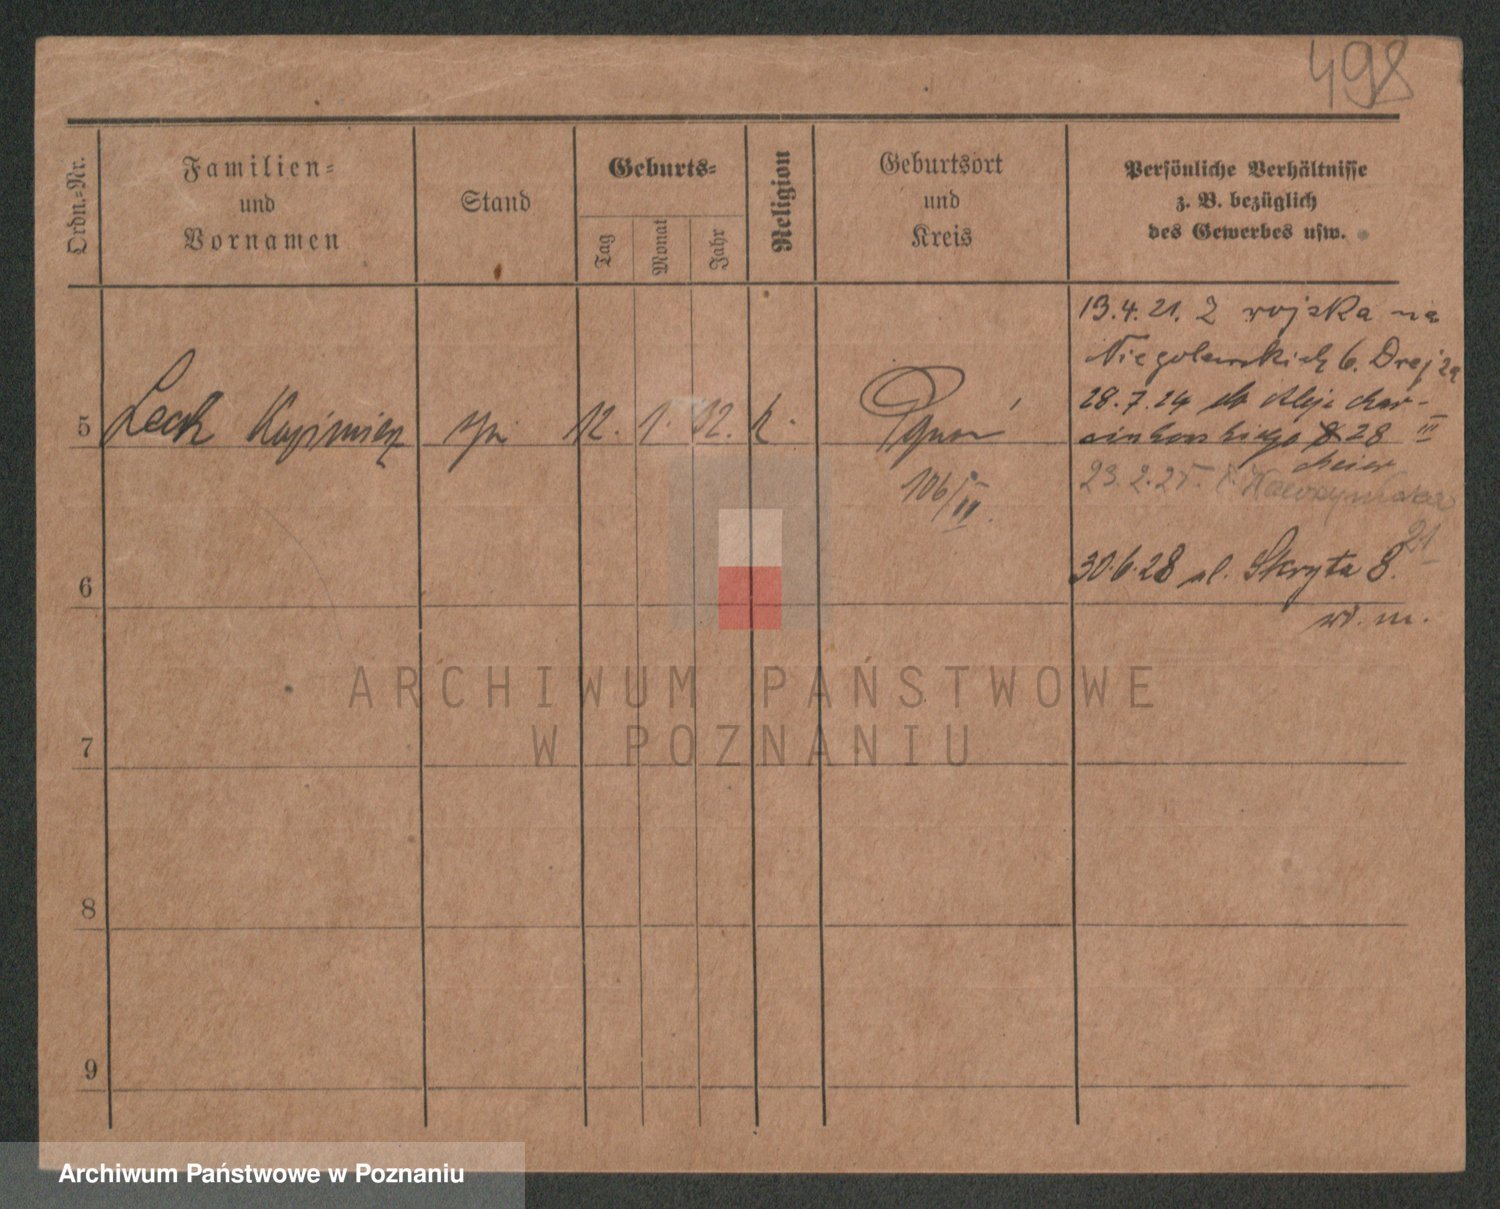 498
Ordn.-Nr.
Familien-
und
Vornamen
Stand
Geburts-
Tag
Monat
Jahr
Religion
Geburtsort
und
Kreis
Persönliche Verhältnisse
z. B. bezüglich
des Gewerbes usw.
13.4.21. Z wojska na
Niegolewskich 6. Drejza
28.7.24 Aleje Mar-
cinkowskiego 28 III
Meier
5 Lech Kazimierz syn 12. 1. 32. k. Poznań
106/III.
23.2.25.
21
6
30.6.28 ul. Skryta 8.
w. m.
7
8
9
ARCHIWUM PAŃSTWOWE
W POZNANIU
Archiwum Państwowe w Poznaniu